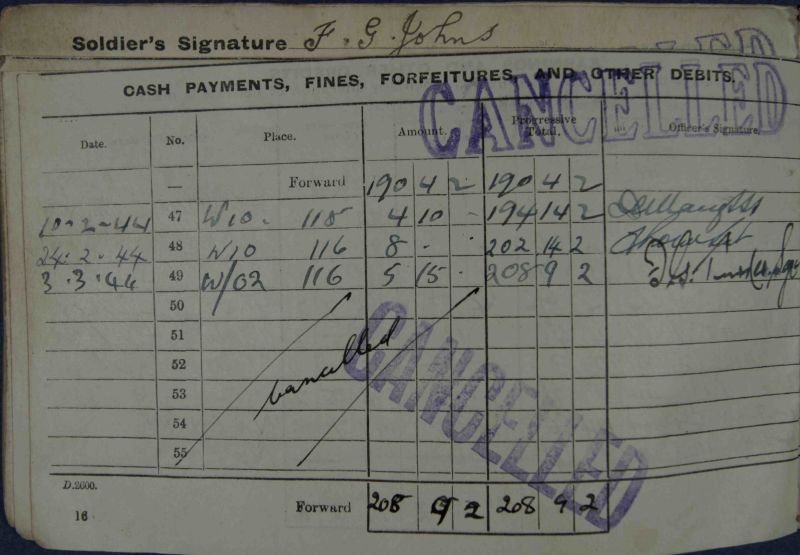 Soldier's Signature F. G. Johns
CASH PAYMENTS, FINES, FORFEITURES, AND OTHER DEBITS.
CANCELLED
Date. No. Place. Amount. Progressive Total. Officer's Signature.
— Forward 190 4 2 190 4 2
10-2-44 47 W10. 115 4 10 - 194 14 2
24.2.44 48 W10 116 8 - . 202 14 2
3.3.44 49 W/02 116 5 15 . 208 9 2
50
51
52
cancelled
CANCELLED
53
54
55
D.2600.
Forward 208 9 2 208 9 2
16